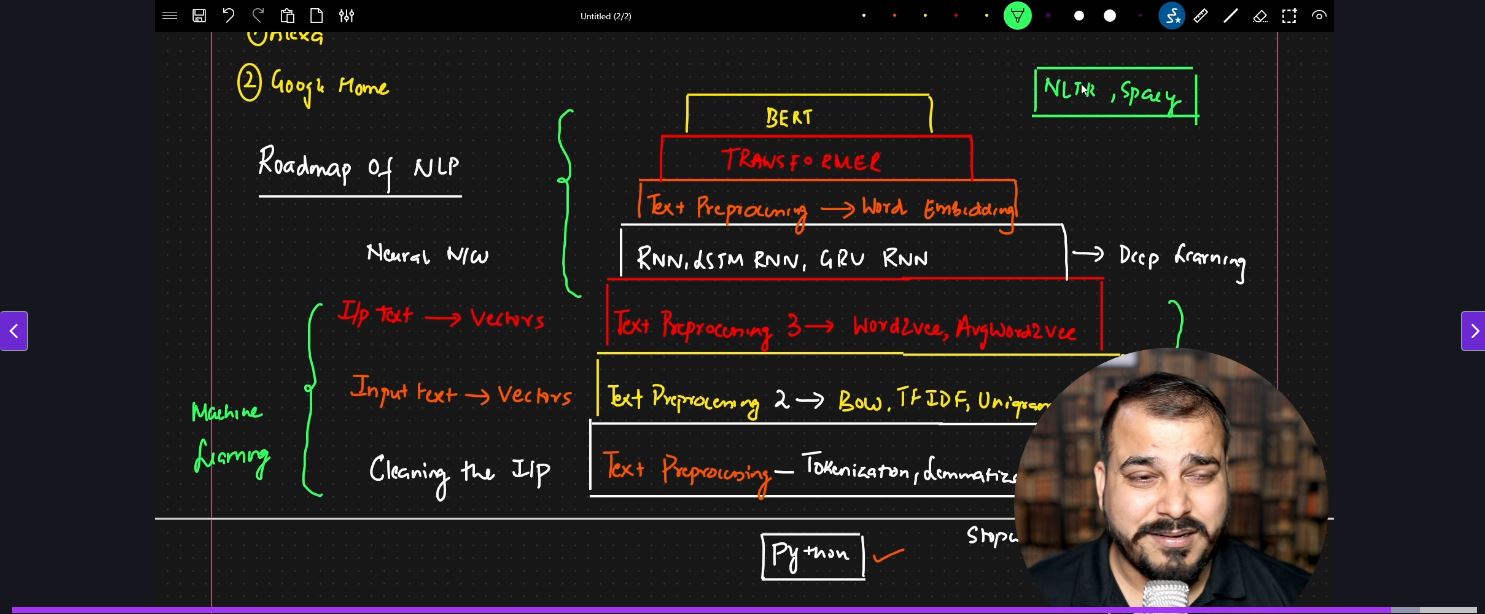 Untitled (2/2)
① Alexa
② Google Home
NLTK, Spacy
BERT
Roadmap Of NLP
TRANSFORMER
Text Preprocessing → Word Embedding
Neural N/W
RNN, LSTM RNN, GRU RNN → Deep Learning
I/p Text → Vectors
Text Preprocessing 3 → Word2vec, AvgWord2vec
Input text → Vectors
Text Preprocessing 2 → BOW, TFIDF, Unigram
Machine
Learning
Cleaning the I/p
Text Preprocessing – Tokenization, Lemmatiza
Stopw
Python